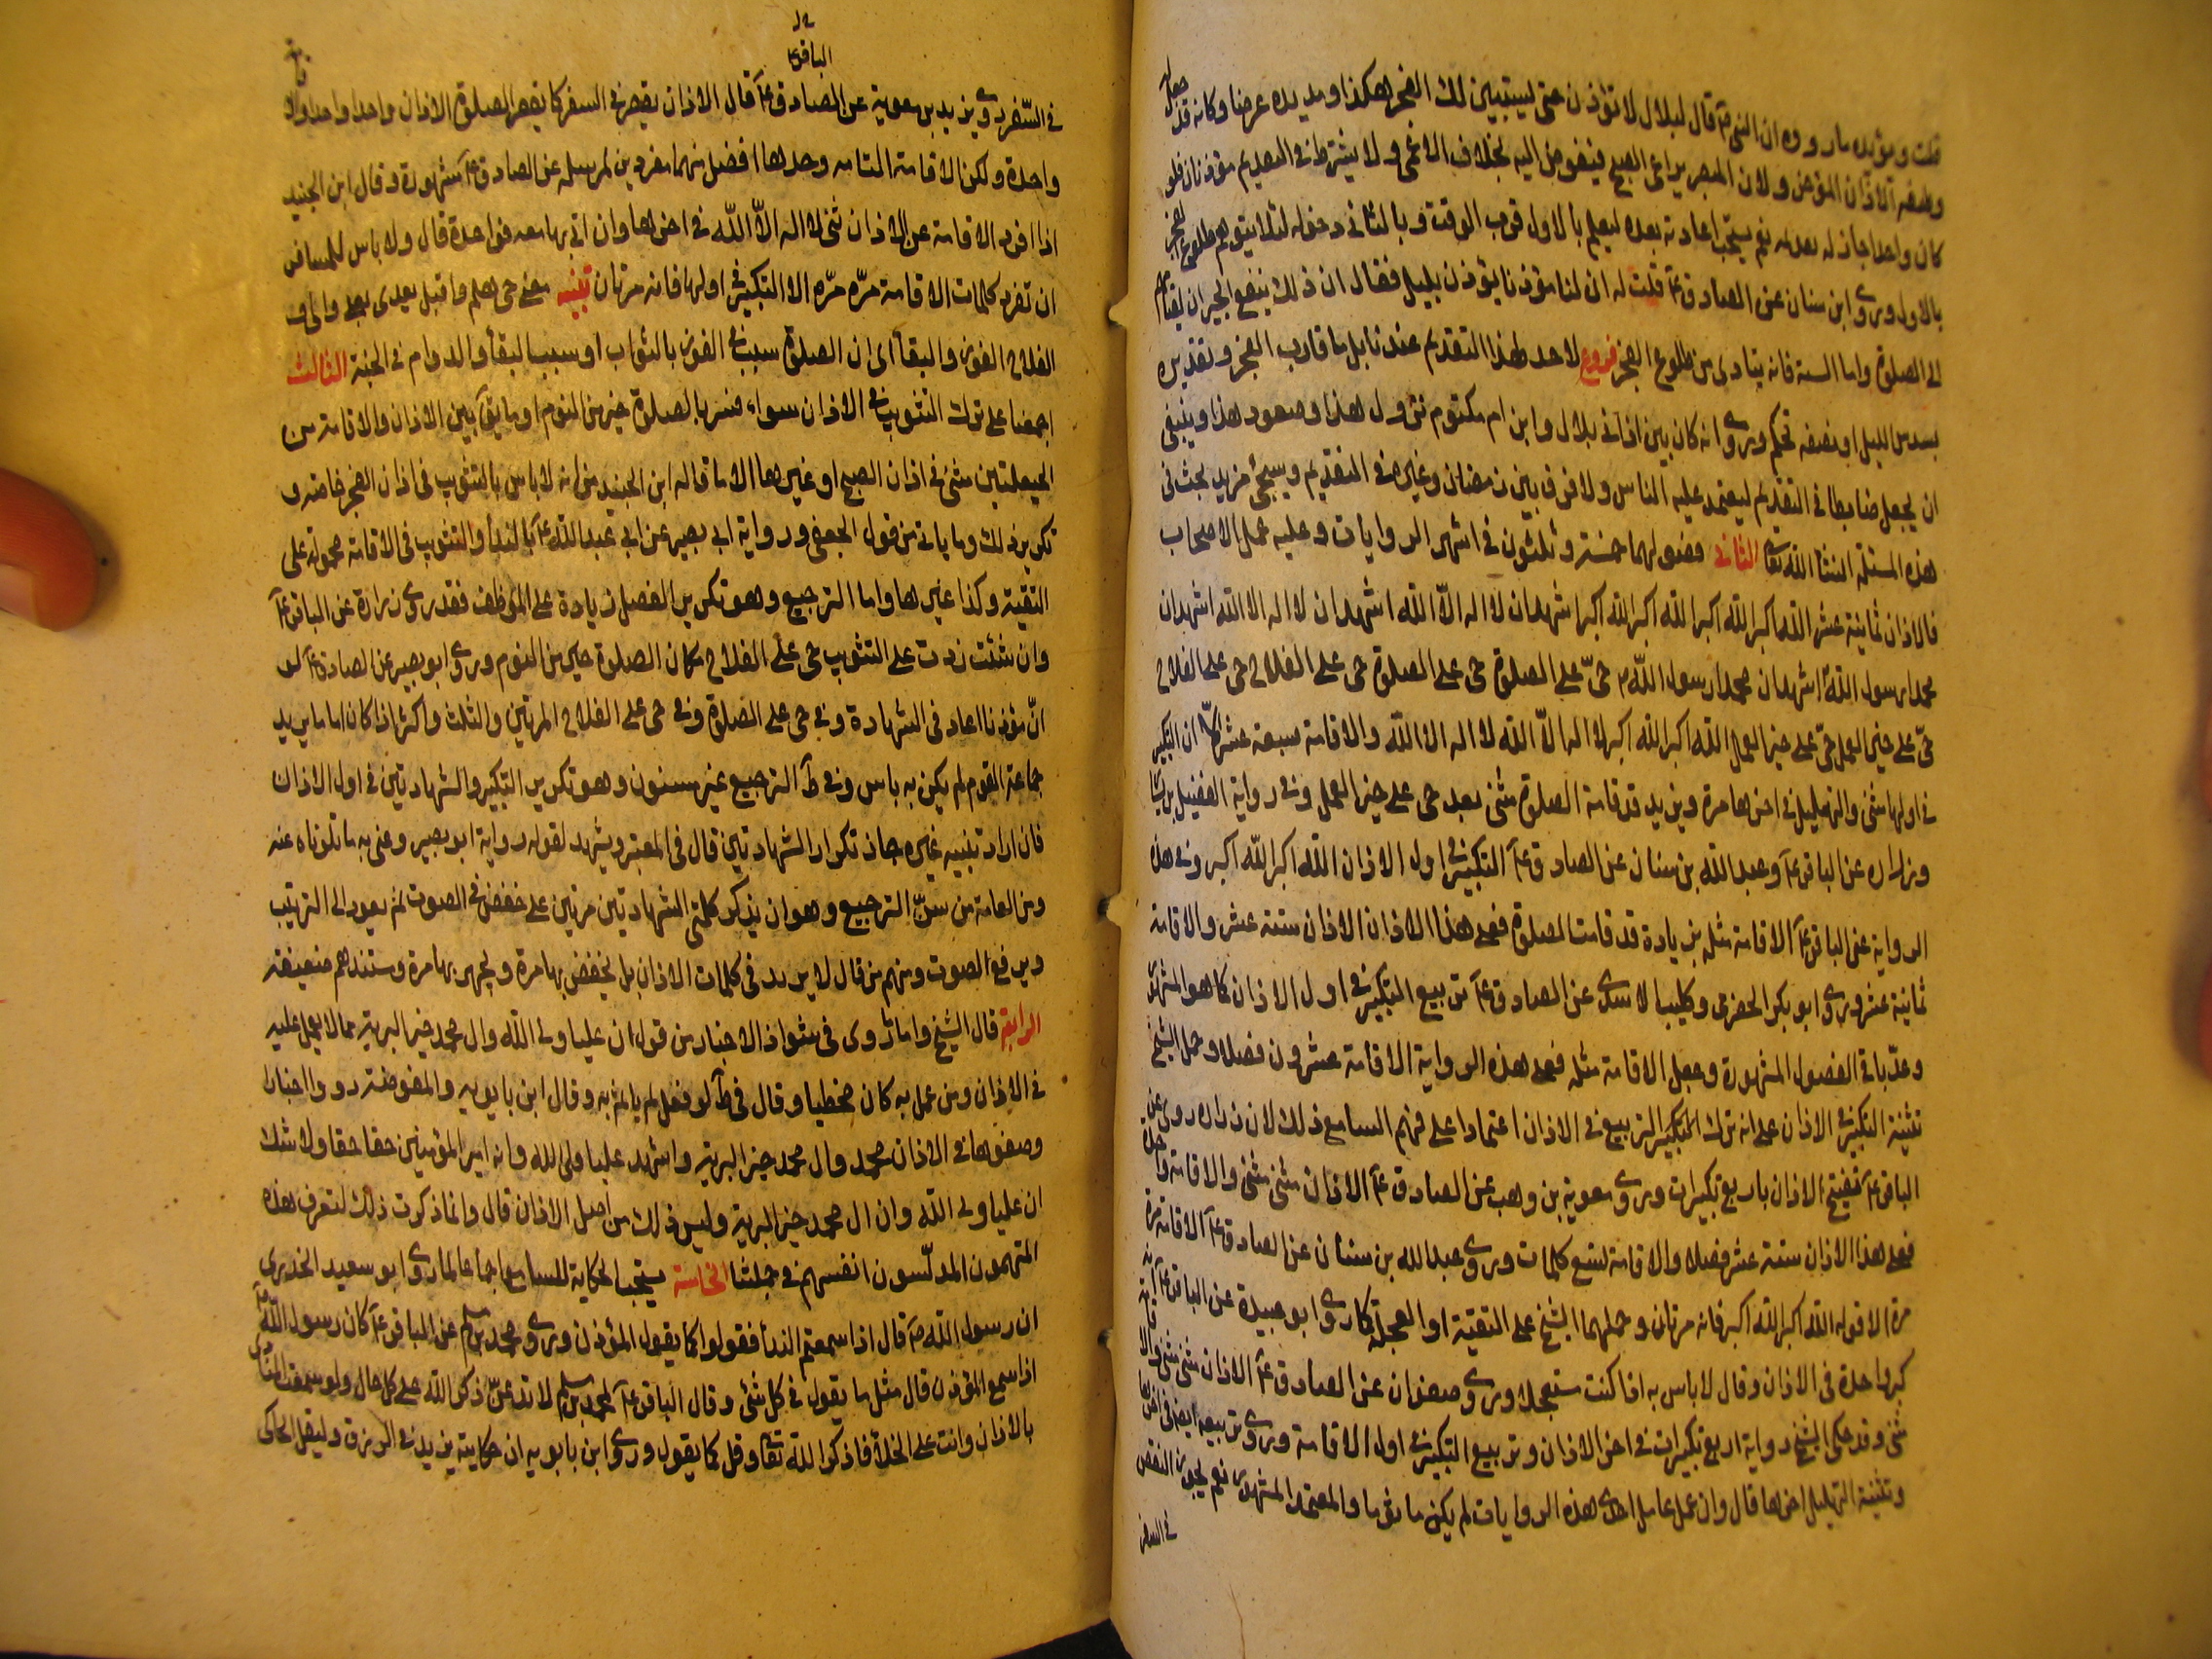 قلت ويؤيده ما رووه ان النبي ص قال لبلال لا تؤذن حتى يستبين لك الفجر هكذا ومد يده عرضا وكانه قد جعل
وظيفته الاذان المؤخر ولان المبصر يراعي الصبح فيفوض اليه بخلاف الاعمى ولا يشترط في التعديم مؤذنان فلو
كان واحدا جاز له بعد ثم يستحب اعادته بعده ليعلم بالاول قرب الوقت وبالثاني دخوله لئلا يتوهم طلوع الفجر
بالاول وروى ابن سنان عن الصادق ع قلت له ان لنا مؤذنا يؤذن بليل فقال ان ذلك ينفع الجيران لقيامهم
الى الصلوة واما السنة فانه ينادى من طلوع الفجر فروع لا حد لهذا التقديم عندنا بل ما قارب الفجر وتقديره
بسدس الليل او نصفه تحكم وروى انه كان بين اذاني بلال وابن ام مكتوم نزول هذا وصعود هذا وينبغي
ان يجعل ضابطا في التقديم ليعتمد عليه الناس ولا فرق بين رمضان وغيره في التقديم وسيجئ مزيد بحث في
هذه المسئلة انشا الله تعا الثاني فصولهما خمسة وثلثون في اشهر الروايات وعليه عمل الاصحاب
فالاذان ثمانية عشر الله اكبر الله اكبر الله اكبر الله اكبر اشهد ان لا اله الا الله اشهد ان لا اله الا الله اشهد ان
محمدا رسول الله اشهد ان محمدا رسول الله م حي على الصلوة حي على الصلوة حي على الفلاح حي على الفلاح
حي على خير العمل حي على خير العمل الله اكبر الله اكبر لا اله الا الله لا اله الا الله والاقامة سبعة عشر كلا ان التكبير
في اولها مثنى والتهليل في اخرها مرة ويزيد قد قامت الصلوة مثنى بعد حي على خير العمل وفي رواية الفضيل بن يسا
وزراره عن الباقر ع وعبد الله بن سنان عن الصادق ع التكبير في اول الاذان الله اكبر الله اكبر وفي هذه
الرواية عن الباقر ع الاقامة مثله بزيادة قد قامت الصلوة فعلى هذا الاذان ستة عشر والاقامة
ثمانية عشر وروى ابو بكر الحضرمي وكليب الاسدي عن الصادق ع تربيع التكبير في اول الاذان كما هو المشهور
وعد باقي الفصول المشهورة وجعل الاقامة مثله فعلى هذه الرواية الاقامة عشرون فصلا وحمل الشيخ
تثنية التكبير في الاذان على انه ترك التكبير التربيع في الاذان اعتمادا على فهم السامع ذلك لان زراره روى عن
الباقر ع تفتتح الاذان باربع تكبيرات وروى معوية بن وهب عن الصادق ع الاذان مثنى مثنى والاقامة واحدة
فعلى هذا الاذان ستة عشر فصلا والاقامة تسع كلمات وروى عبد الله بن سنان عن الصادق ع الاقامة مرة
مرة الا قوله الله اكبر الله اكبر فانه مرتان وحملهما الشيخ على التقية او العجلة كما روى ابو عبيدة عن الباقر ع انه
كبر واحدة في الاذان وقال لا باس به اذا كنت مستعجلا وروى صفوان عن الصادق ع الاذان مثنى مثنى والاقامة
مثنى وقد حكى الشيخ رواية اربع تكبيرات في اخر الاذان وتربيع التكبير في اول الاقامة وروى تربيعه ايضا في اخرها
وتثنية التهليل اخرها قال وان عمل عامل احدى هذه الروايات لم يكن ماثوما والمعتمد المشهور نعم يجوز النقص
في السفر
الباقر ع
في السفر وروى يزيد بن معوية عن الصادق ع قال الاذان يقصر في السفر كما يقصر الصلوة الاذان واحدا واحدا والاقامة
واحدة ولكن الاقامة التامه وحدها افضل منهما مفردين لمرسله عن الصادق ع مشهورة وقال ابن الجنيد
اذا افرد الاقامة عن الاذان ثنى لا اله الا الله في اخرها وان اتى بها معه فواحدة قال ولا باس للمسافر
ان تفرد كلمات الاقامة مرّه مرّه الا التكبير في اولها فانه مرتان تنبيه معنى حي هلم واقبل يعدى بعلى والى و
الفلاح الفوز والبقا اى ان الصلوة سبب في الفوز بالثواب او سبب البقا والدوام في الجنة الثالث
اجمعنا على ترك التثويب في الاذان سواء فسر بالصلوة خير من النوم او ما يق بين الاذان والاقامة من
الحيعلتين مثنى في اذان الصبح او غيرها الا ما قاله ابن الجنيد من انه لا باس بالتثويب في اذان الفجر خاصه و
تكرير ذلك وما ياتي من قول الجعفي ورواية ابي بصير عن ابي عبد الله ع بالندا والتثويب في الاقامة محمولة على
التقية وكذا غيرها واما الترجيع وهو تكرير الفصل زيادة على الموظف فقد روى زرارة عن الباقر ع
وان شئت زدت على التثويب حي على الفلاح مكان الصلوة خير من النوم وروى ابو بصير عن الصادق ع لو
ان مؤذنا اعاد في الشهادة وفي حي على الصلوة وفي حي على الفلاح المرتين والثلث واكثر اذا كان اماما يريد
جماعة القوم لم يكن به باس وفي ط الترجيع غير مسنون وهو تكرير التكبير والشهادتين في اول الاذان
فان اراد تنبيه غيره جاز تكرار الشهادتين قال في المعتبر ويشهد لقوله رواية ابو بصير وعنى به ما تلوناه عنه
ومن العامة من سن الترجيع وهو ان يذكر كلمتي الشهادتين مرتين على خفض في الصوت ثم يعود الى الترتيب
ويرفع الصوت ومنهم من قال لا يريد في كلمات الاذان بل يخفض بها مرة ويجهر بها مرة ومستندهم ضعيفة
الرابع قال الشيخ واما ما روى في شواذ الاخبار من قول ان عليا ولي الله وال محمد خير البرية مما لا يعمل عليه
في الاذان ومن عمل به كان مخطيا وقال في ط لو فعل لم ياثم به وقال ابن بابويه والمفوضة رووا اخبارا
وضعوها في الاذان محمد وال محمد خير البرية واشهد عليا ولي الله وانه امير المؤمنين حقا حقا ولا شك
ان عليا ولي الله وان ال محمد خير البرية وليس ذلك من اصل الاذان قال وانما ذكرت ذلك لتعرف هذه
المتهمون المدلّسون انفسهم في جملتنا الخامسة يستحب الحكاية للسامع اجماعا لما روى ابو سعيد الخدري
ان رسول الله ص قال اذا سمعتم الندا فقولوا كما يقول المؤذن وروى محمد بن مسلم عن الباقر ع كان رسول الله ص
اذا سمع المؤذن قال مثل ما يقول في كل شئ وقال الباقر ع لمحمد بن مسلم لا تدعن ذكر الله على كل حال ولو سمعت المنادي
بالاذان وانت على الخلا فاذكر الله تعا وقل كما يقول وروى ابن بابويه ان حكايته يزيد في الرزق وليقل الحاكى